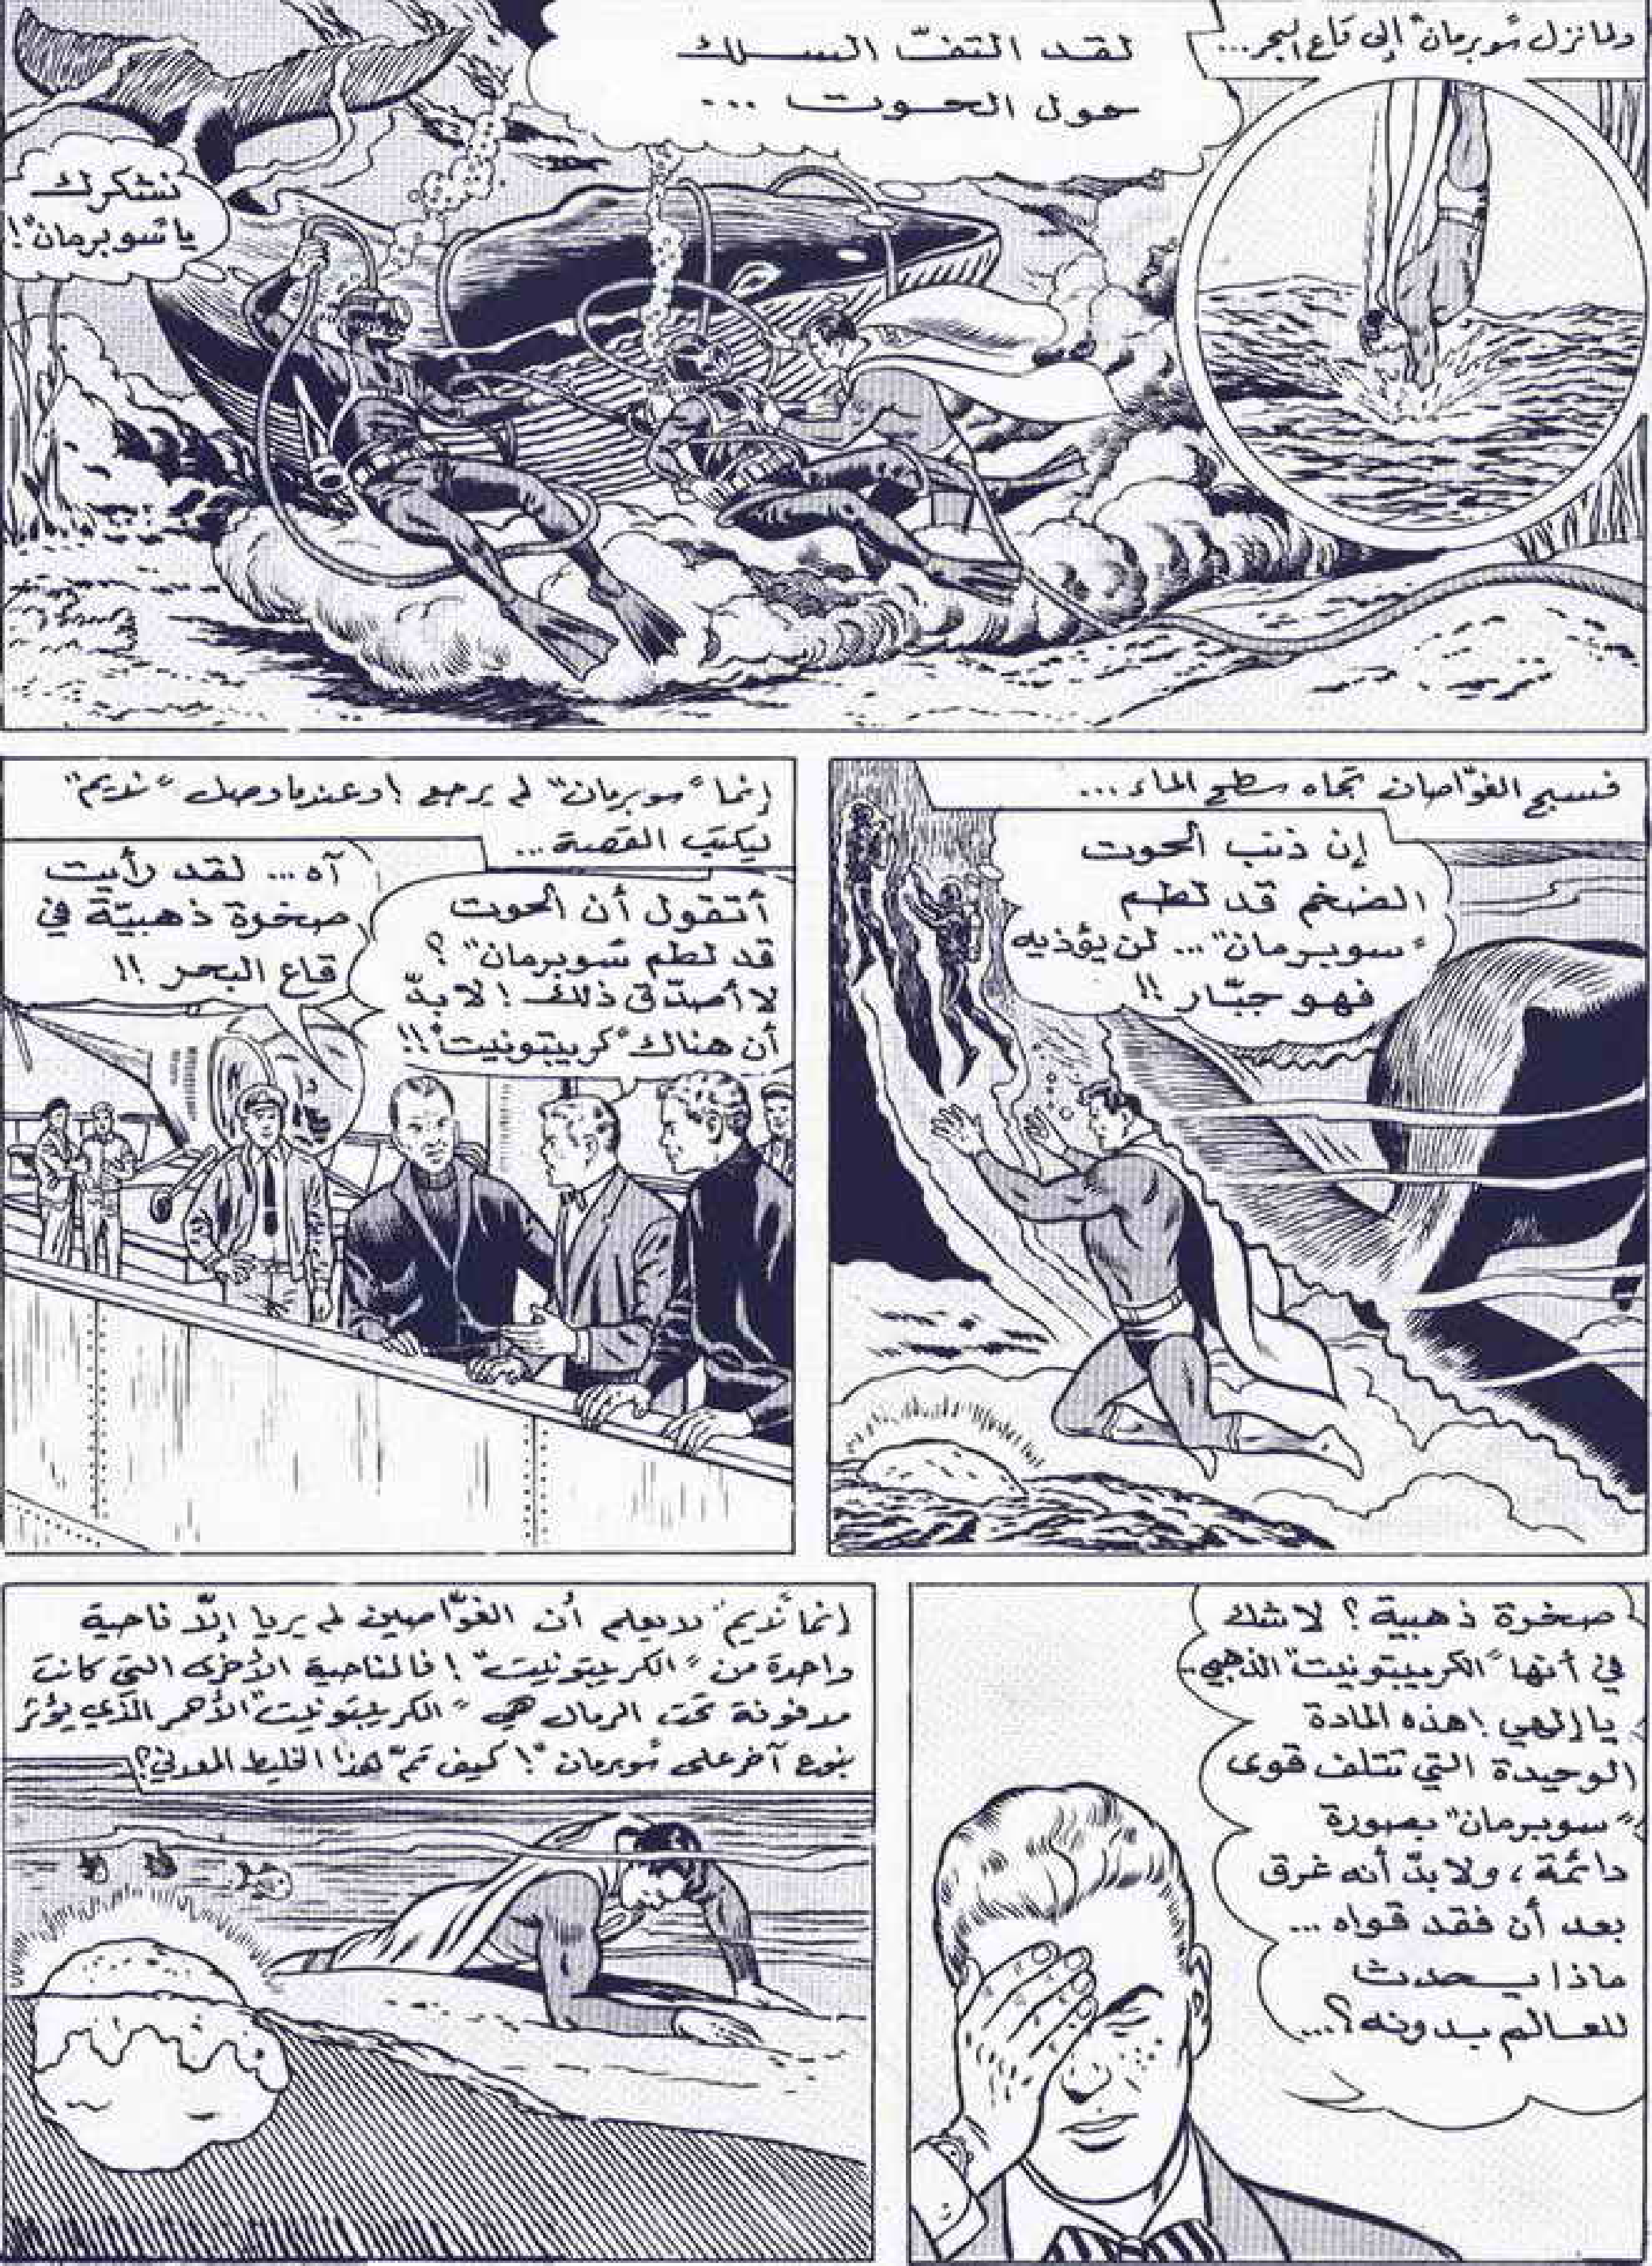 ولما نزل "سوبرمان" إلى قاع البحر...
لقد التفّ السلك
حول الحوت ...
نشكرك
يا "سوبرمان"!
فسبح الغوّاصان تجاه سطح الماء...
إن ذنب الحوت
الضخم قد لطم
"سوبرمان"... لن يؤذيه
فهو جبّار !!
إنما "سوبرمان" لم يرجع ! وعندما وصل "نديم"
ليكتب القصة...
أتقول أن الحوت
قد لطم "سوبرمان" ؟
لا أصدّق ذلك ! لا بدّ
أن هناك "كريبتونيت"!!
آه... لقد رأيت
صخرة ذهبيّة في
قاع البحر !!
صخرة ذهبية ؟ لا شك
في أنها "الكريبتونيت" الذهبي..
يا إلهي ! هذه المادة
الوحيدة التي تتلف قوى
"سوبرمان" بصورة
دائمة ، ولا بدّ أنه غرق
بعد أن فقد قواه ...
ماذا يحدث
للعالم بدونه ؟...
إنما "نديم" لا يعلم أن الغوّاصين لم يريا إلّا ناحية
واحدة من "الكريبتونيت" ! فالناحية الأخرى التي كانت
مدفونة تحت الرمال هي "الكريبتونيت" الأحمر الذي يؤثر
بنوع آخر على "سوبرمان" ! كيف تمّ هذا الخليط المعدني ؟